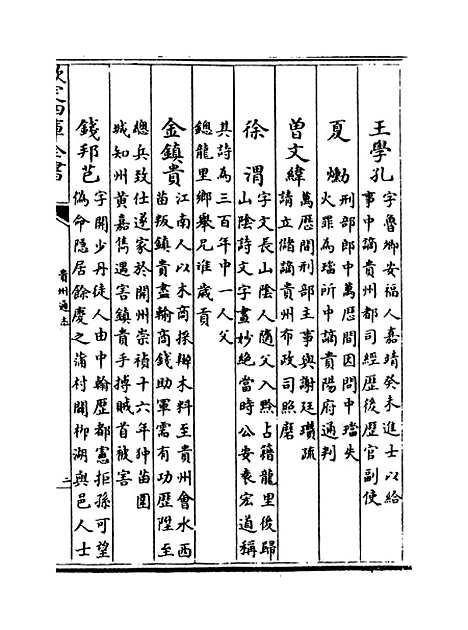 王學孔字魯鄉安福人嘉靖癸未進士以給
事中謫貴州都司經歷後歷官副使
夏 刑部郎中萬歷間因問中璫失
火罪為璫所中謫貴陽府通判
曽文緯萬歷間刑部主事與謝廷瓚疏
請立儲謫貴州布政司照磨
徐渭字文長山陰人隨父入黔占籍龍里後歸
山陰詩文字畫妙絶當時公安袁宏道稱
其詩為三百年中一人父
鏓龍里鄉舉兄淮歲貢
金鎮貴江南人以木商採辦木料至貴州會水西
苗叛鎮貴盡輸商錢助軍需有功歷陞至
總兵致仕遂家於開州崇禎十六年狆苗圍
城知州黄嘉雋遇害鎮貴手搏賊首被害
錢邦芑字開少丹徒人由中翰歷都憲拒孫可望
偽命隱居餘慶之蒲村開桺湖與邑人士
欽定四庫全書
貴州通志
二